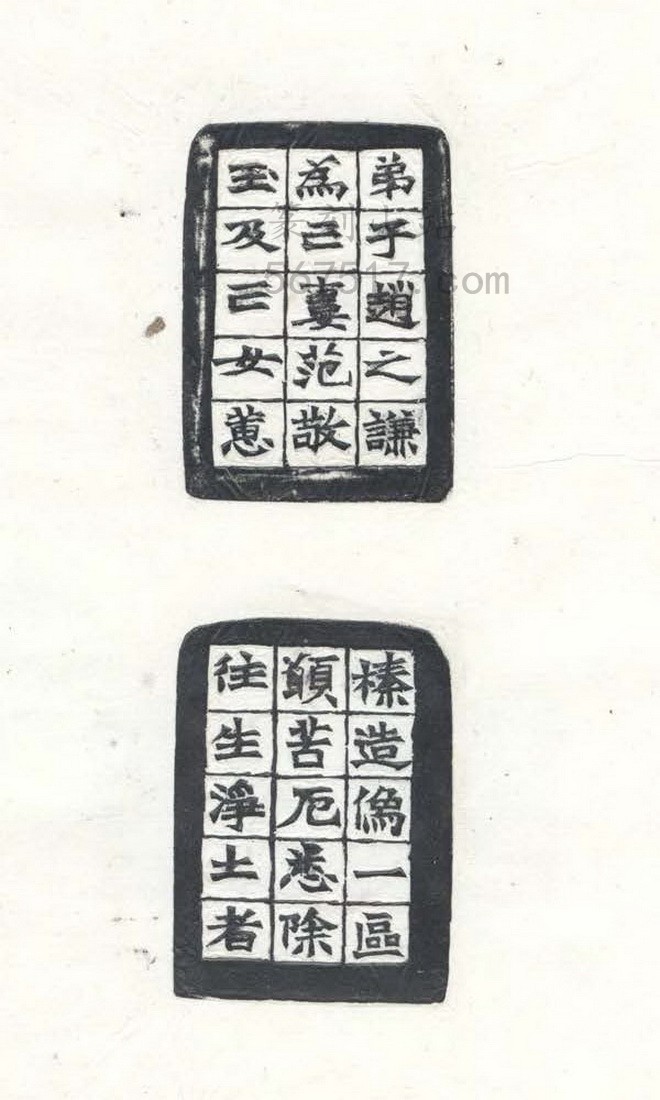 弟子趙之謙
為亡妻范敬
玉及亡女蕙
榛造像一區
願苦厄悉除
往生淨土者
567517.com